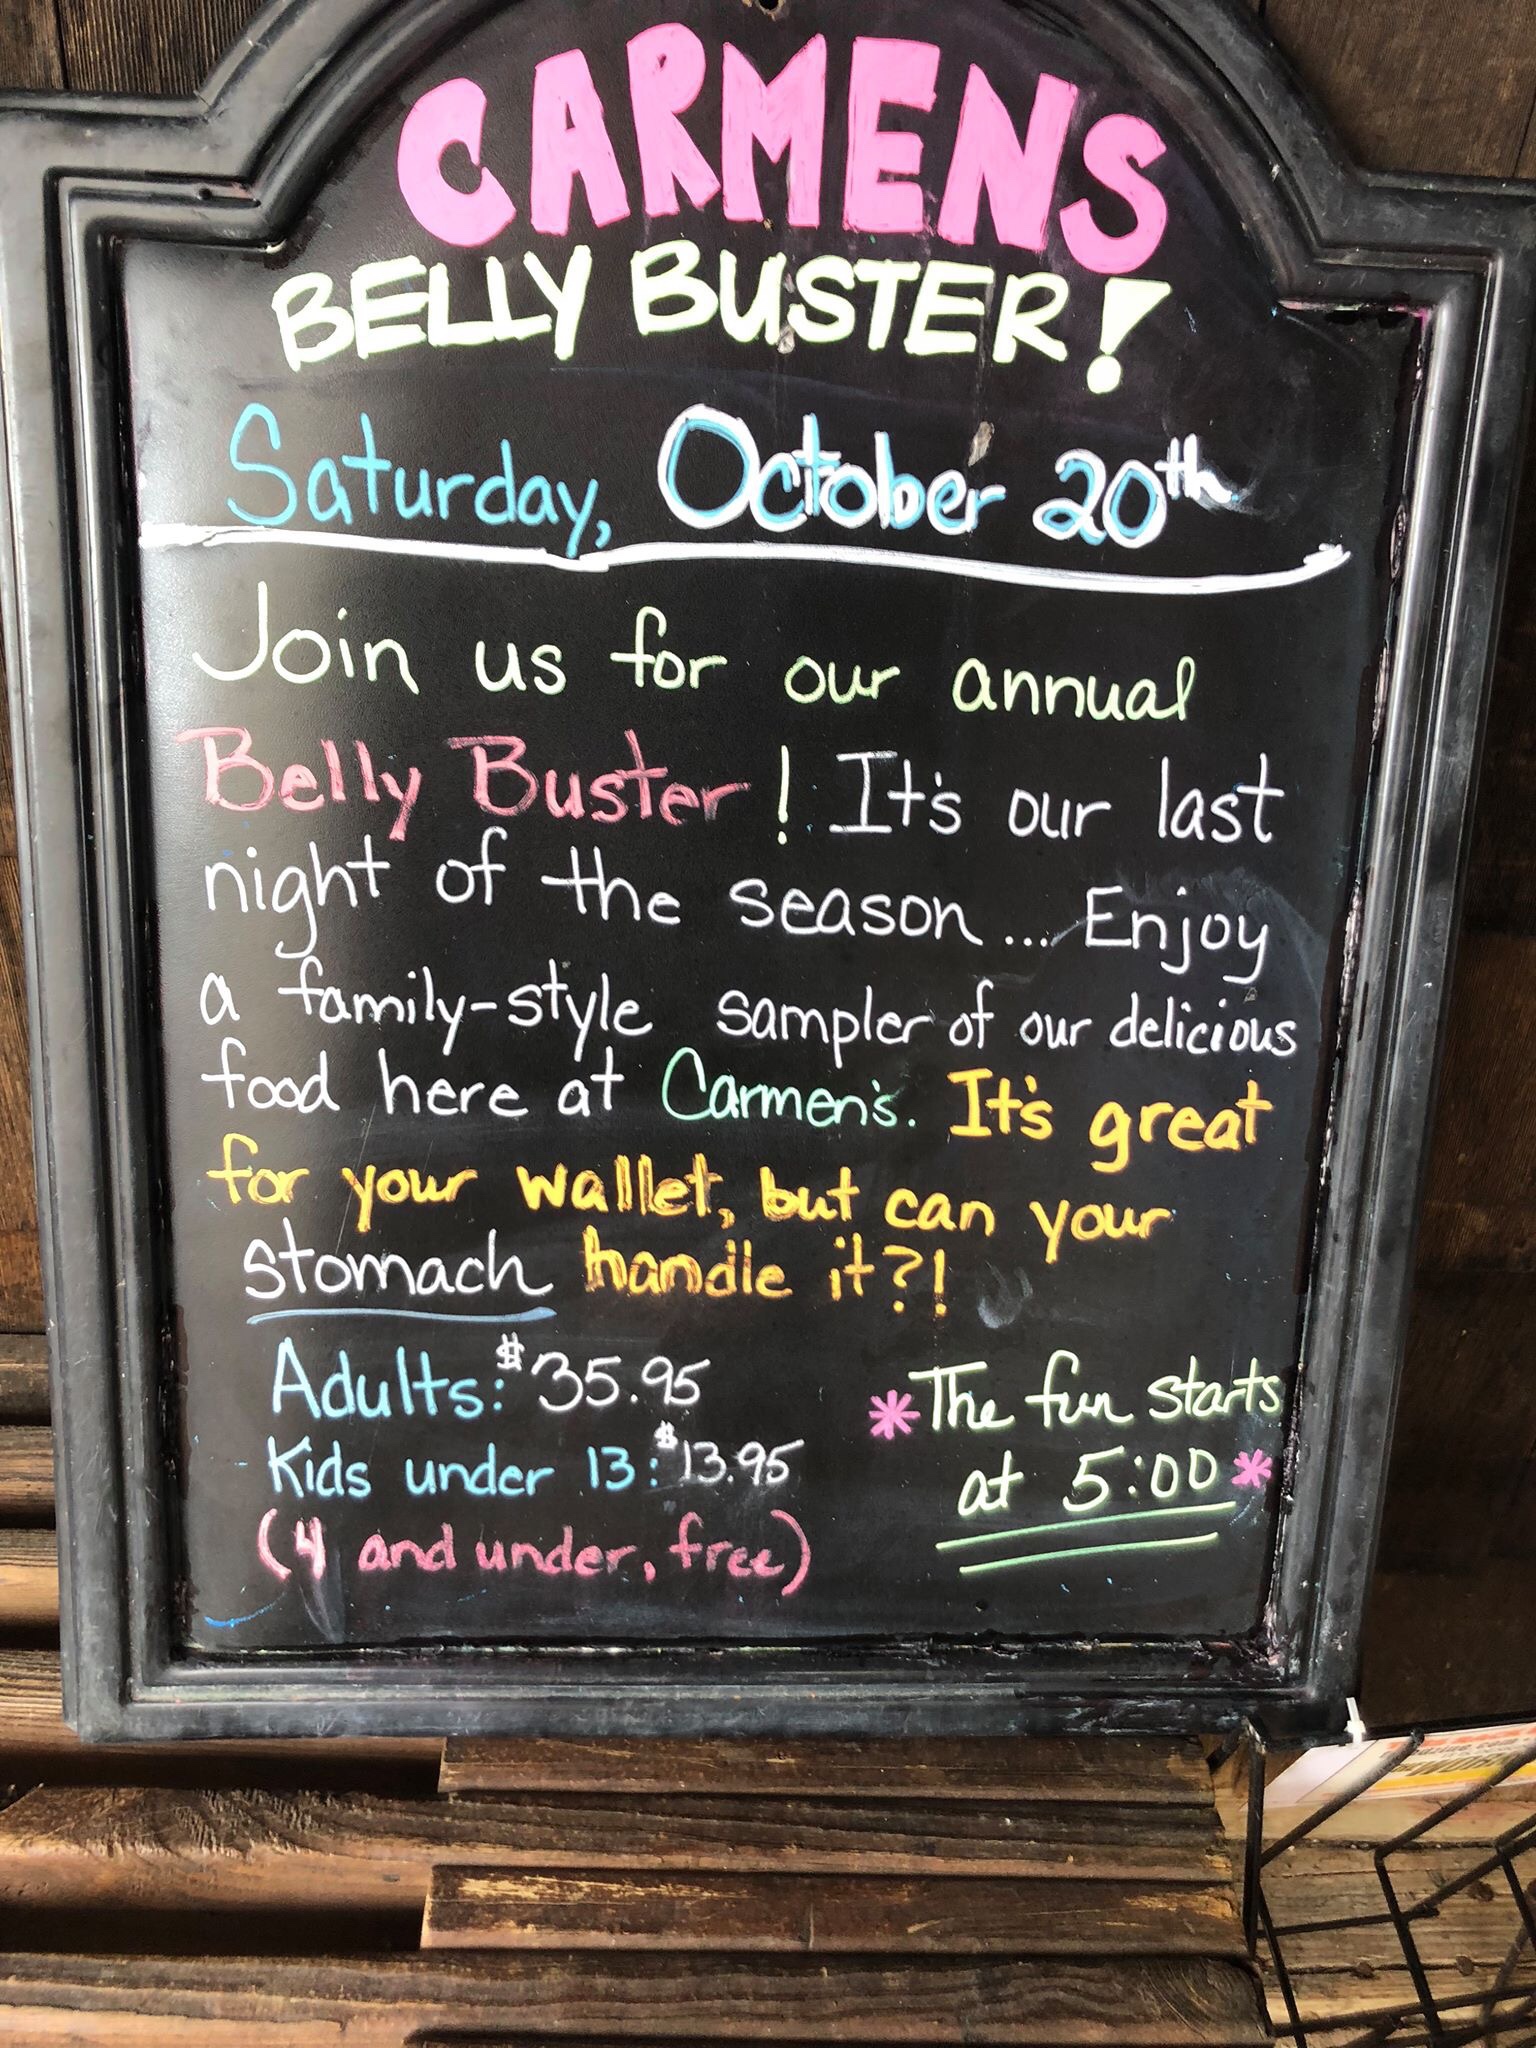 CARMENS
BELLY BUSTER!
Saturday, October 20th
Join us for our annual
Belly Buster! It's our last
night of the season... Enjoy
a family-style sampler of our delicious
food here at Carmen's. It's great
for your wallet, but can your
stomach handle it?!
Adults: $35.95
Kids under 13: $13.95
(4 and under, free)
*The fun starts
at 5:00*